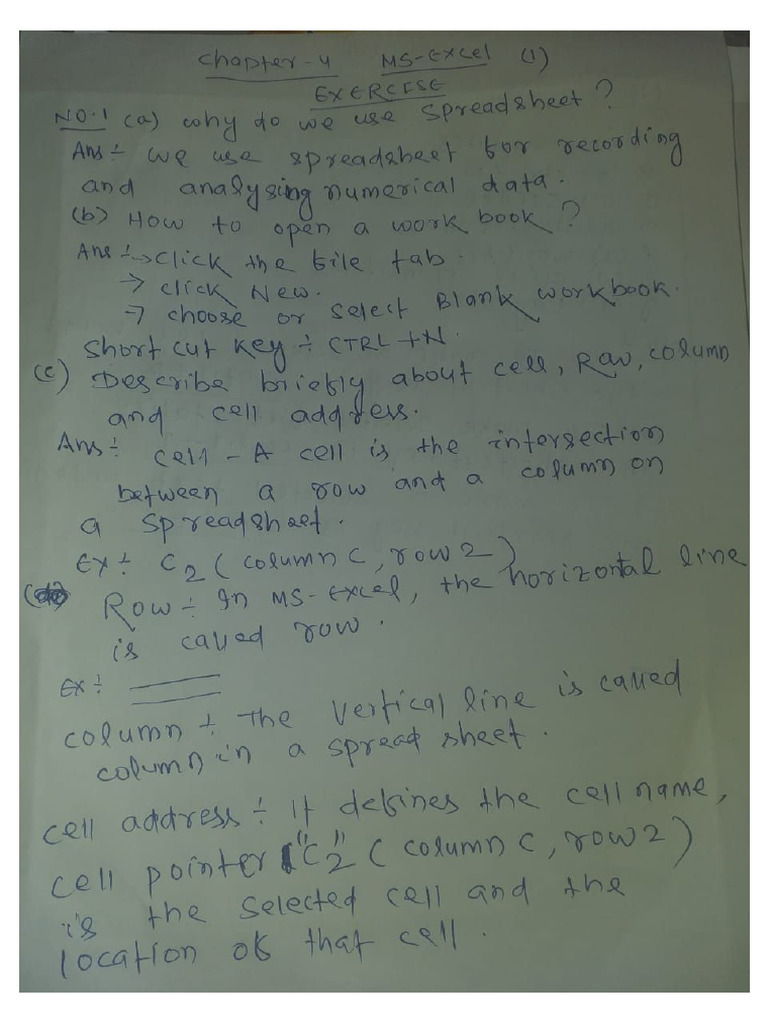 Chapter-4 MS-Excel (1)
EXERCISE
NO.1 (a) why do we use spreadsheet?
Ans÷ We use spreadsheet for recording
and analysing numerical data.
(b) How to open a work book?
Ans÷→ Click the file tab.
→ click New.
→ choose or select Blank workbook.
Short cut key ÷ CTRL+N.
(c) Describe briefly about cell, Raw, column
and cell address.
Ans÷ Cell - A cell is the intersection
between a row and a column on
a spreadsheet.
Ex÷ C2 (column C, row 2)
Row÷ In MS-Excel, the horizontal line
is called row.
Ex÷
column÷ The Vertical line is called
column in a spread sheet.
cell address÷ It defines the cell name,
cell pointer "C2" (column C, row 2)
is the selected cell and the
location of that cell.